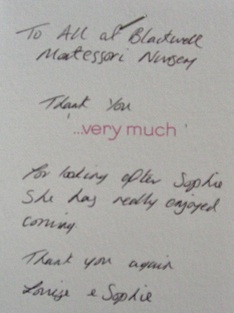 To All at Blackwell
Montessori Nursery
Thank You
'...very much'
for looking after Sophie
She has really enjoyed
coming.
Thank you again
Louise & Sophie